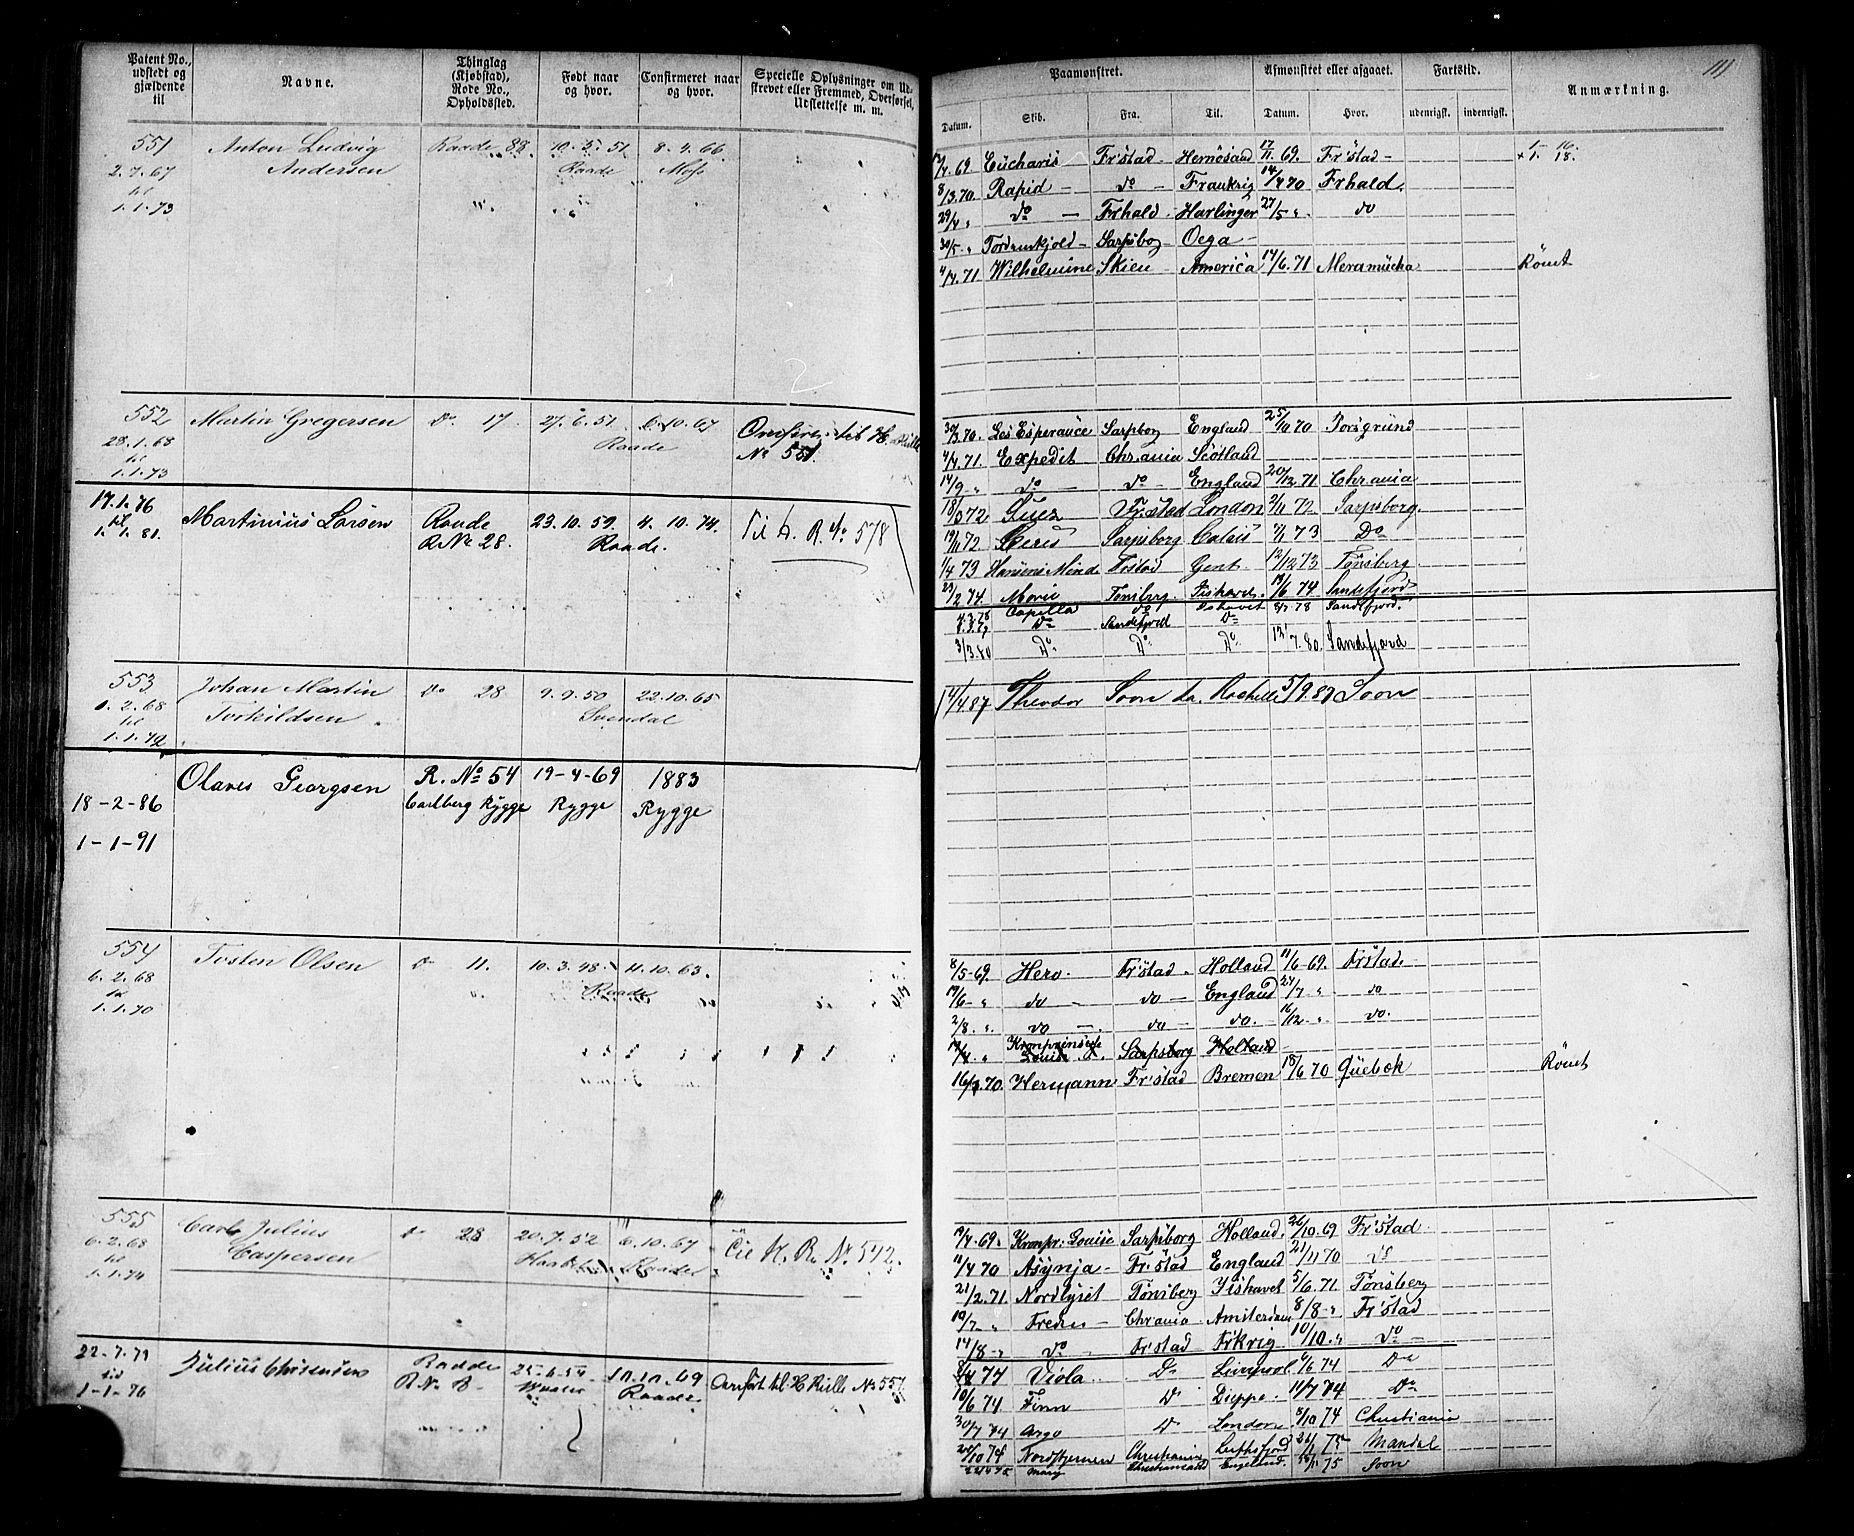 Patent No., udstedt og gjældende til
Navne.
Thinglag (Kjøbstad), Rode No., Opholdssted.
Født naar og hvor.
Confirmeret naar og hvor.
Specielle Oplysninger om Udskrevet eller Fremmed, Overførsel, Udslettelse m. m.
551 Anton Ludvig Raade 88 10. 5. 51 8. 4. 66
2.7.67 Andersen Raade Moss
til
1.1.73
552 Martin Gregersen Do 17 27. 6. 51 6. 10. 67
28.1.68 Raade No 551.
til
1.1.73
17.1.76 Martinius Larsen Raade 23. 10. 59. 4. 10. 74. Til H. R. No 578
til R No 28. Raade.
1.1.81.
553 Johan Martin Do 28 9. 9. 50 22. 10. 65
1.2.68 Torkildsen Svendal
til
1.1.72
Olaves Georgsen R. No 54 19-4-69 1883
18-2-86 Carlberg Rygge Rygge Rygge
1-1-91
554 Tosten Olsen Do 11. 10. 3. 48. 11. 10. 63.
6.2.68 Raade
til
1.1.70
555 Carl Julius Do 28 20. 7. 52 6. 10. 67 Til H. R. No 542.
6.2.68 Caspersen Raade
til
1.1.74
22-7-71 Julius Christensen Raade 25-6-54 10. 10. 69 Overført til H Rulle No 557
til R No 8- Raade
1-1-76
111
Paamønstret.
Afmønstret eller afgaaet.
Fartstid.
Anmærkning.
Datum. Skib. Fra. Til. Datum. Hvor. udenrigsk. indenrigsk.
12/4. 69. Eucharis Fr'stad- Hernøsand 17/11. 69. Fr'stad-
8/3. 70. Rapid - do - Frankrig 14/4 70 Frhald.
29/4 " do - Frhald. Harlingen 27/5 ". do
30/5. " Tordenskjold- Sarpsbog Ocga -
4/4. 71 Wilhelmine Skien America 14/6. 71 Meramücha Rømt
30/3. 70. Les Esperance Sarpbog England 25/10 70 Porsgrund
4/4. 71. Expedit Chrania Scotland
14/9 - " do - do - England 20/12. 71 Chrania
18/3 72 Suez Fr.stad London 2/11 72 Sarpsborg.
19/11 72 Ceres Sarpsborg Calais 7/1 73 Do
1/4 73 Hansens Minde Frstad Gent 12/12 73 Tønsberg
23/2 74. Marie Tønsberg. Ishavet. 19/6 74 Sandefjord
Capella do Ishavet 8/7 78 Sandefjord.
Do Sandefjord Do
3/3. 80 Do Do Do 13/7. 80. Sandefjord
14/4 87 Theodor Soon La Rochelle 5/9. 87 Soon
8/5-69. Hero. Fr'stad. Holland 11/6-69. Frstad.
17/6- " do - do - England 27/7 " do
2/8. " do -. do - do. 16/12 - ". do.
Kronprinsesse
Louise Sarpsborg Holland
16/3. 70. Hermann Fr'stad Bremen 18/6 70 Quebek Rømt
12/4. 69. Kronpr: Louise Sarpsborg Holland. 26/10. 69 Fr'stad.
11/4 70 Asynja- Fr'stad England 21/11 70 do
21/2. 71. Nordlyset Tønsberg Ishavet 5/6. 71. Tønsberg
10/7- " Freden- Chrania Amsterdam 8/8- " Fr'stad
14/8- " do. Fr'stad Frkrig 10/10. " do -
74 Viola Do Liverpool 6/6 74 Do
10/6 74 Finn Do Dieppe. 11/7 74 Do
30/7 74 Argo Do London 8/10 74 Christiania
20/10 74 Nordstjernen Christiania 75 Mandal
Mary Christiansand England. 75 Soon